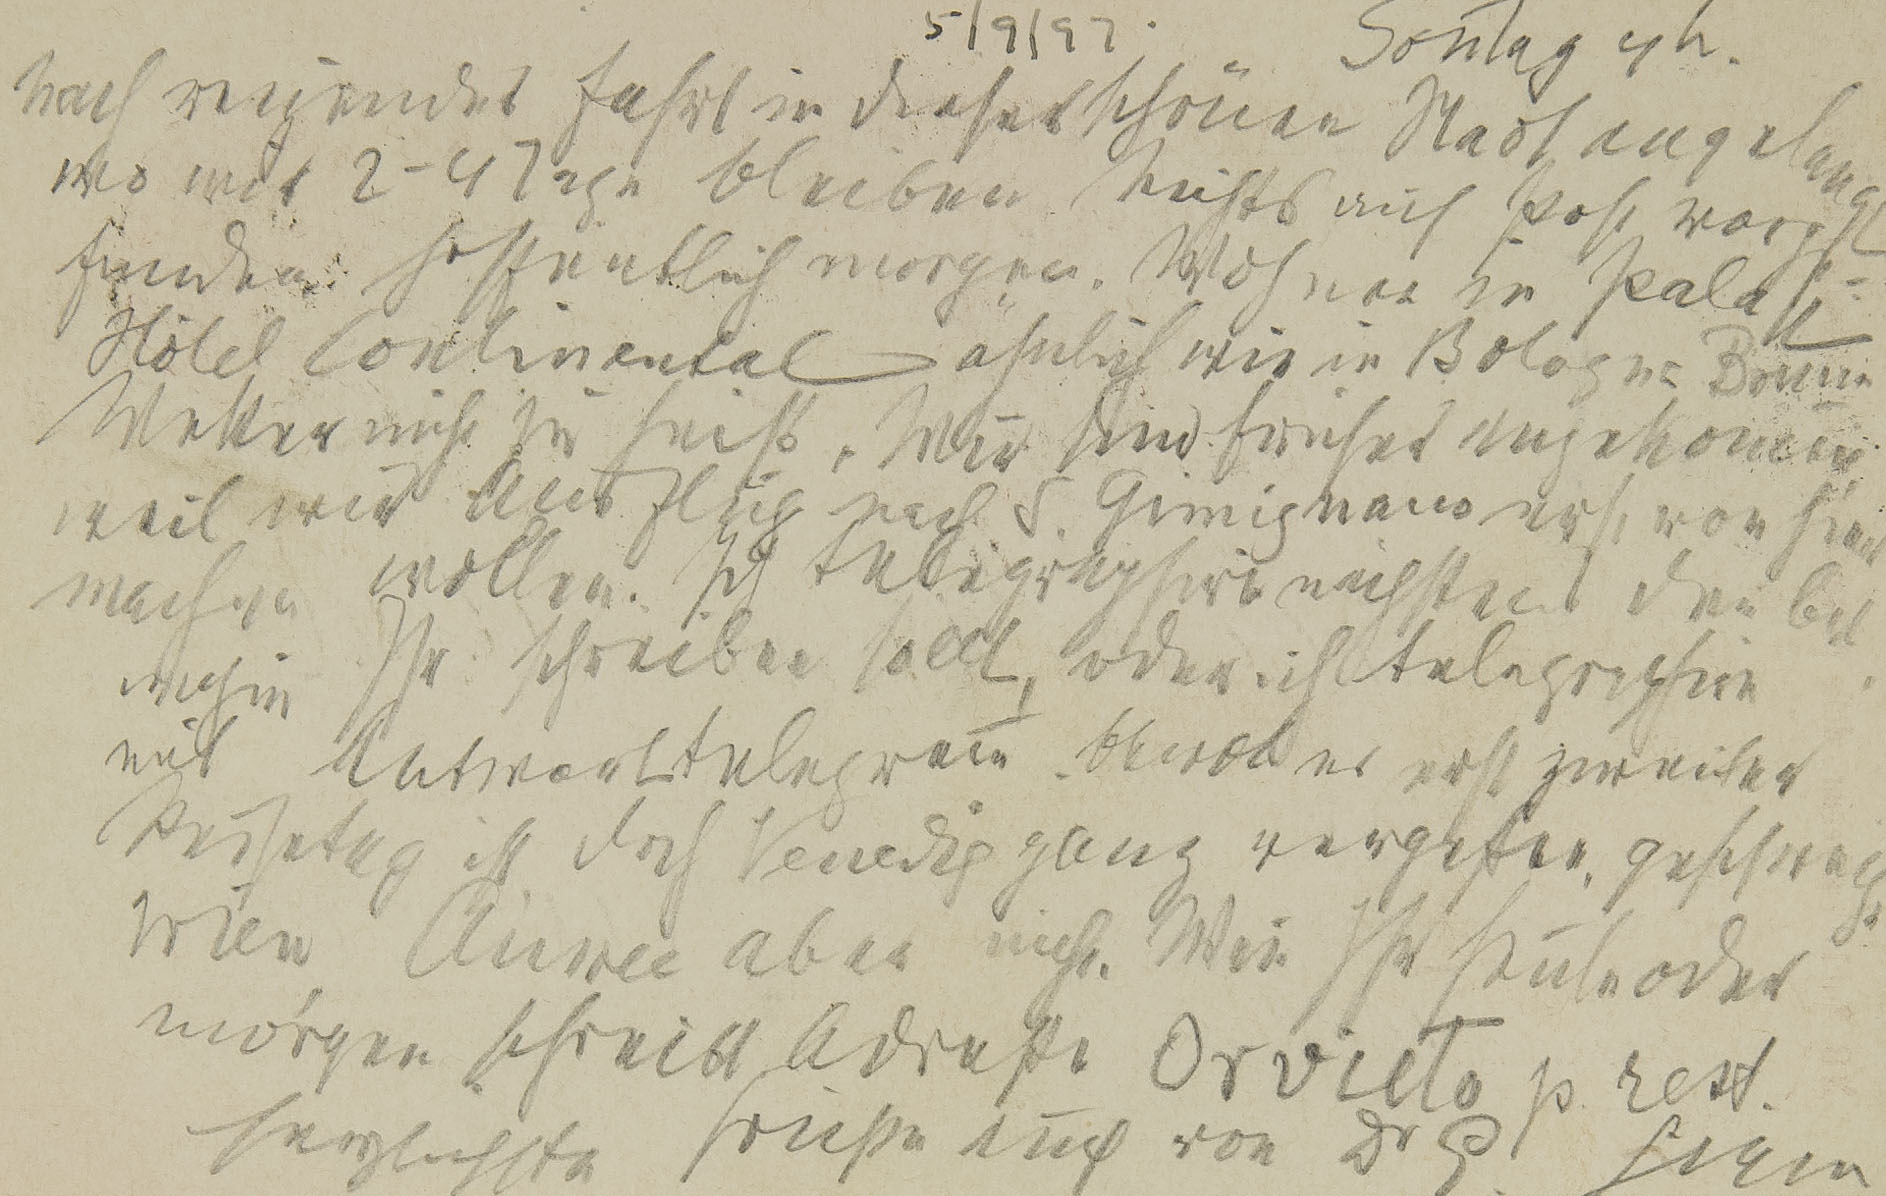 5/9/97. Sontag 4 h.
Nach reizender Fahrt in dieser schönen Stadt angelangt
wo wir 2–4 Tage bleiben Nichts auf Post vorge-
funden hoffentlich morgen. Wohnen in Palast
Hôtel Continental ähnlich wie in Bologna Brun
Wetter nicht zu heiß. Wir sind früher angekomen
weil wir Ausflug nach S. Gimignano erst von hier
machen wollen. Ich telegraphire nächstens den
wohin Ihr schreiben sollt, oder ich telegraphire
mit Antworttelegram. Obwol es erst zweiter
Reisetag ist doch Venedig ganz vergeßen, geschweige
Wien Aussee aber nicht. Wen Ihr heute oder
morgen schreibt Adreße Orvieto p rest.
Herzlichste Grüße auch von Dr G. Euer